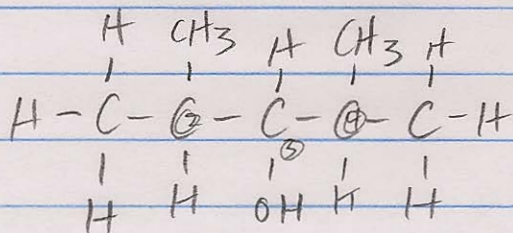 H CH3 H CH3 H
H - C - C - C - C - C - H
② ③ ④
H H OH H H